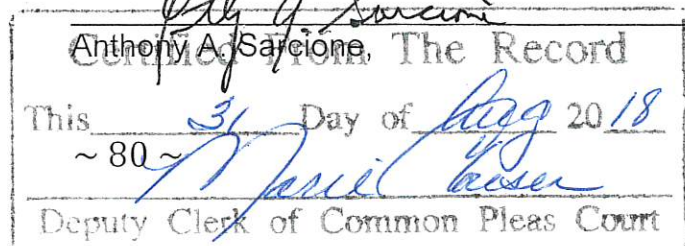 Anthony A. Sarcione,
Certified From The Record
This 31 Day of Aug 20 18
~ 80 ~
Deputy Clerk of Common Pleas Court